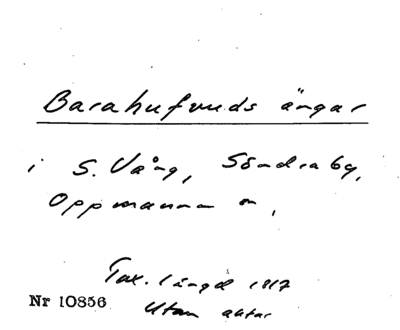 Barahufvuds ängar
i S. Vång, Söndraby,
Oppmanna m,
Tax. längd 1817
Nr 10856 Utan aktar